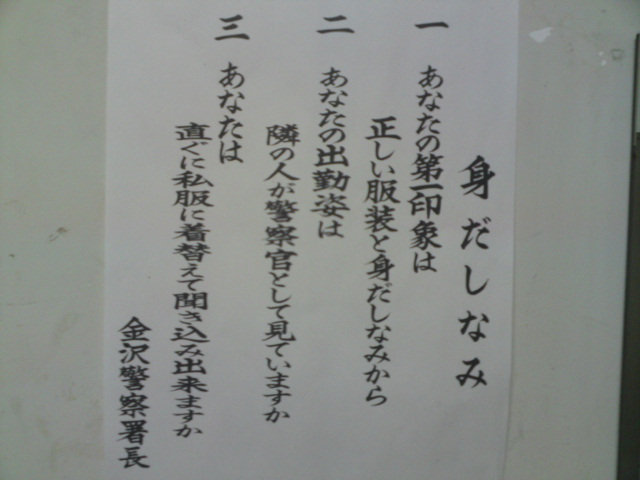 身だしなみ
一 あなたの第一印象は
正しい服装と身だしなみから
二 あなたの出勤姿は
隣の人が警察官として見ていますか
三 あなたは
直ぐに私服に着替えて聞き込み出来ますか
金沢警察署長